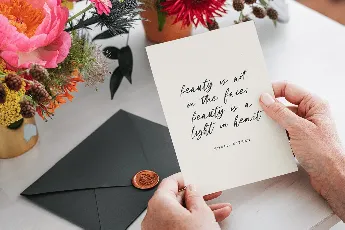 beauty is not
in the face;
beauty is a
light in heart